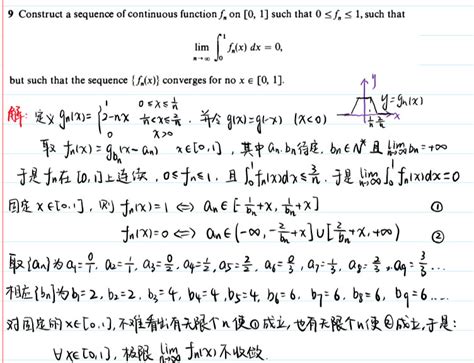 9 Construct a sequence of continuous function fₙ on [0, 1] such that 0 ≤ fₙ ≤ 1, such that
lim_{n→∞} ∫₀¹ fₙ(x) dx = 0,
but such that the sequence {fₙ(x)} converges for no x ∈ [0, 1].
解: 定义 gₙ(x) = { 1 0≤x≤1/n
2-nx 1/n<x≤2/n, 并令 g(x)=g(-x) (x<0)
0 x>0
y
y=gₙ(x)
1/n 2/n x
取 fₙ(x) = g_{bₙ}(x-aₙ) x∈[0,1], 其中 aₙ, bₙ 待定, bₙ∈N* 且 lim_{n→∞} bₙ=+∞
于是 fₙ 在 [0,1] 上连续, 0≤fₙ≤1, 且 ∫₀¹ fₙ(x)dx ≤ 3/n, 于是 lim_{n→∞} ∫₀¹ fₙ(x)dx=0
固定 x∈[0,1], 则 fₙ(x)=1 ⟺ aₙ∈[-1/bₙ+x, 1/bₙ+x] ①
fₙ(x)=0 ⟺ aₙ∈(-∞, -2/bₙ+x]∪[2/bₙ+x, +∞) ②
取{aₙ}为 a₁=0/1, a₂=1/1, a₃=0/2, a₄=1/2, a₅=2/2, a₆=0/3, a₇=1/3, a₈=2/3, a₉=3/3 ...
相应{bₙ}为 b₁=2, b₂=2, b₃=4, b₄=4, b₅=4, b₆=6, b₇=6, b₈=6, b₉=6 ....
对固定的 x∈[0,1], 不难看出有无限个 n 使①成立, 也有无限个 n 使②成立, 于是:
∀x∈[0,1], 极限 lim_{n→∞} fₙ(x) 不收敛.